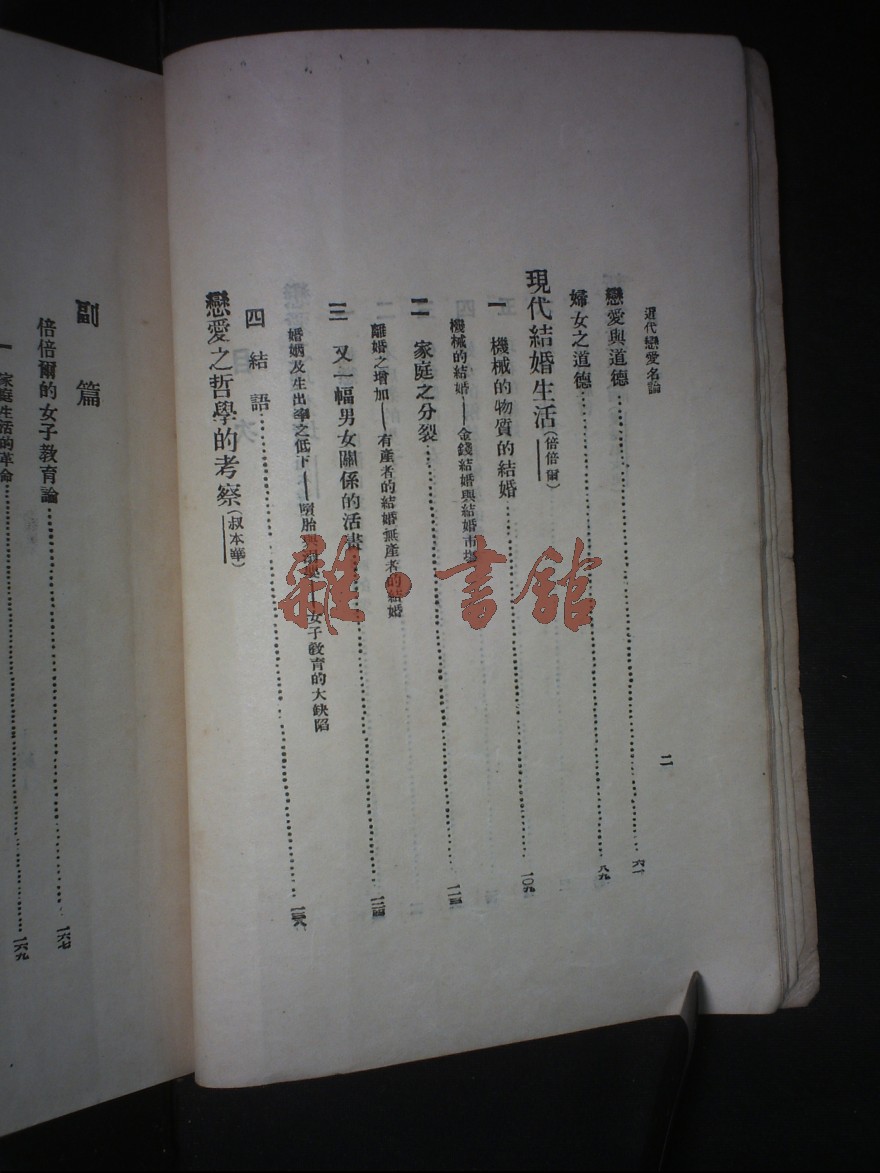 近代戀愛名論
二
戀愛與道德……六一
婦女之道德……八九
現代結婚生活(倍倍爾)
一 機械的物質的結婚……一〇九
機械的結婚——金錢結婚與結婚市場
二 家庭之分裂
離婚之增加——有產者的結婚無產者的結婚
三 又一幅男女關係的活畫
婚姻及生出率之低下——墮胎——女子敎育的大缺陷
四 結語
戀愛之哲學的考察(叔本華)
副篇
倍倍爾的女子敎育論……一六七
一 家庭生活的革命……一六九
雜·書館